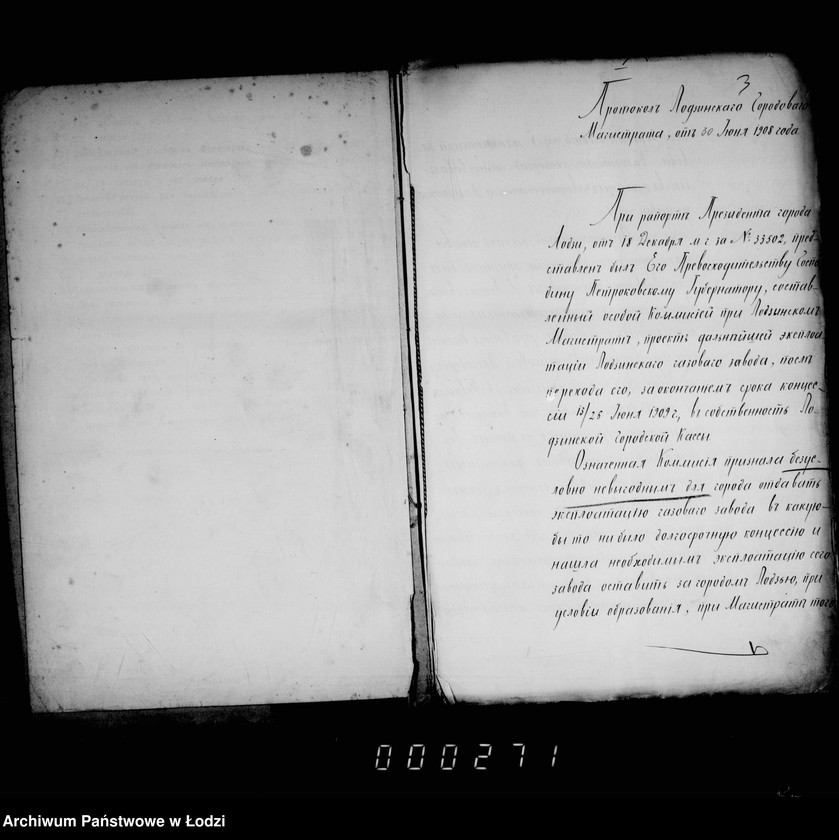 3
Протоколъ Лодзинскаго Городоваго
Магистрата, отъ 30 Іюня 1908 года
При рапортѣ Президента города
Лодзи, отъ 18 Декабря м. г. за № 33502, пред-
ставленъ былъ Его Превосходительству Госпо-
дину Петроковскому Губернатору, состав-
ленный особой Коммисіей при Лодзинскомъ
Магистратѣ, проектъ дальнѣйшей эксплоа-
таціи Лодзинскаго газоваго завода, послѣ
перехода его, за окончаніемъ срока концес-
сіи 13/25 Іюня 1909 г., въ собственность Ло-
дзинской городской Кассы.
Означенная Коммисія признала безус-
ловно невыгоднымъ для города отдавать
эксплоатацію газоваго завода въ какую-
бы то ни было долгосрочную концессію и
нашла необходимымъ эксплоатацію сего
завода оставить за городомъ Лодзью, при
условіи образованія, при Магистратѣ того
000271
Archiwum Państwowe w Łodzi